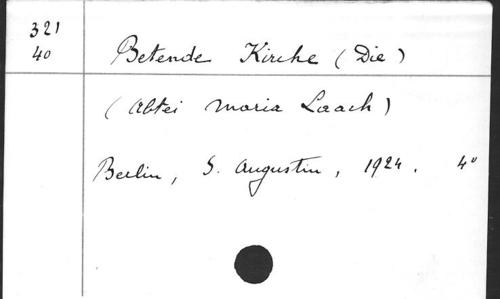 321
40
Betende Kirche (Die)
(Abtei Maria Laach)
Berlin, S. Augustin, 1924. 4°